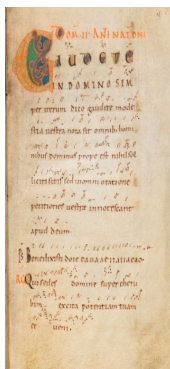 DOM · III · ANT NAT DNI
GAUDETE
IN DOMINO SEM
per iterum dico gaudete mode
stia vestra nota sit omnibus homi
nibus dominus prope est nihil sol
liciti sitis sed in omni oratione
petitiones vestrae innotescant
apud deum
Benedixisti dne
Qui sedes domine super cheru
bim excita potentiam tuam
et veni